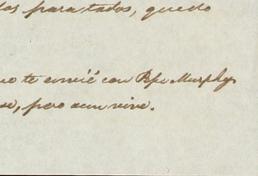 para todos, quedo
no te envié con Bpe Murphy.
se, pero aun vive.